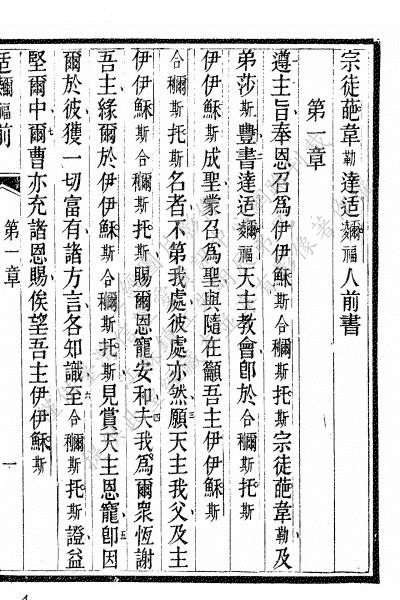 宗徒葩韋勒達适爾福人前書
第一章
遵主旨奉恩召爲伊伊穌斯合穪斯托斯宗徒葩韋勒及
弟莎斯豐書達适爾福天主教會卽於合穪斯托斯
伊伊穌斯成聖蒙召爲聖與隨在籲吾主伊伊穌斯
合穪斯托斯名者不第我處彼處亦然願天主我父及主
伊伊穌斯合穪斯托斯賜爾恩寵安和夫我爲爾衆恆謝
吾主緣爾於伊伊穌斯合穪斯托斯見賞天主恩寵卽因
爾於彼獲一切富有諸方言各知識至合穪斯托斯證益
堅爾中爾曹亦充諸恩賜俟望吾主伊伊穌斯
适爾福前
第一章
一